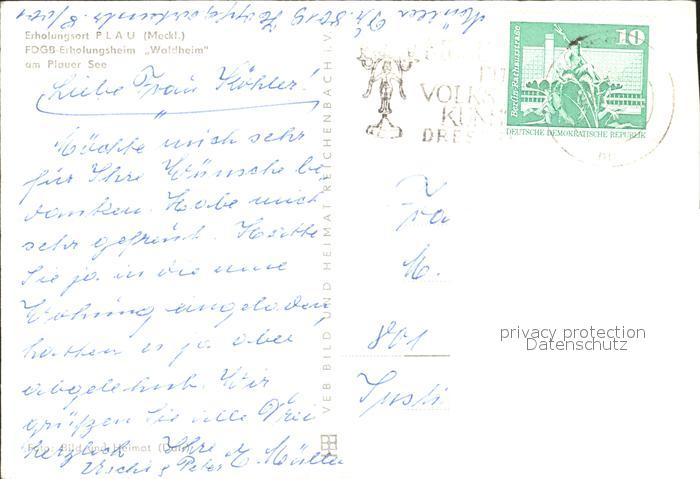 Müller
8019
Erholungsort PLAU (Meckl.)
FDGB-Erholungsheim „Waldheim"
am Plauer See
Liebe Frau Köhler!
Möchte mich sehr
für Ihre Wünsche be
danken. Habe mich
sehr gefreut. Hatte
Sie ja in die neue
Wohnung eingeladen,
hatten es ja aber
abgelehnt. Wir
grüßen Sie alle Drei
herzlich Ihre E. Müller
Uschi & Peter
Foto: Bild und Heimat
VEB BILD UND HEIMAT REICHENBACH I. V.
VOLKS
KUNS
DRES
Berlin, Rathausstraße
10
DEUTSCHE DEMOKRATISCHE REPUBLIK
Fra
M.
801
privacy protection
Datenschutz